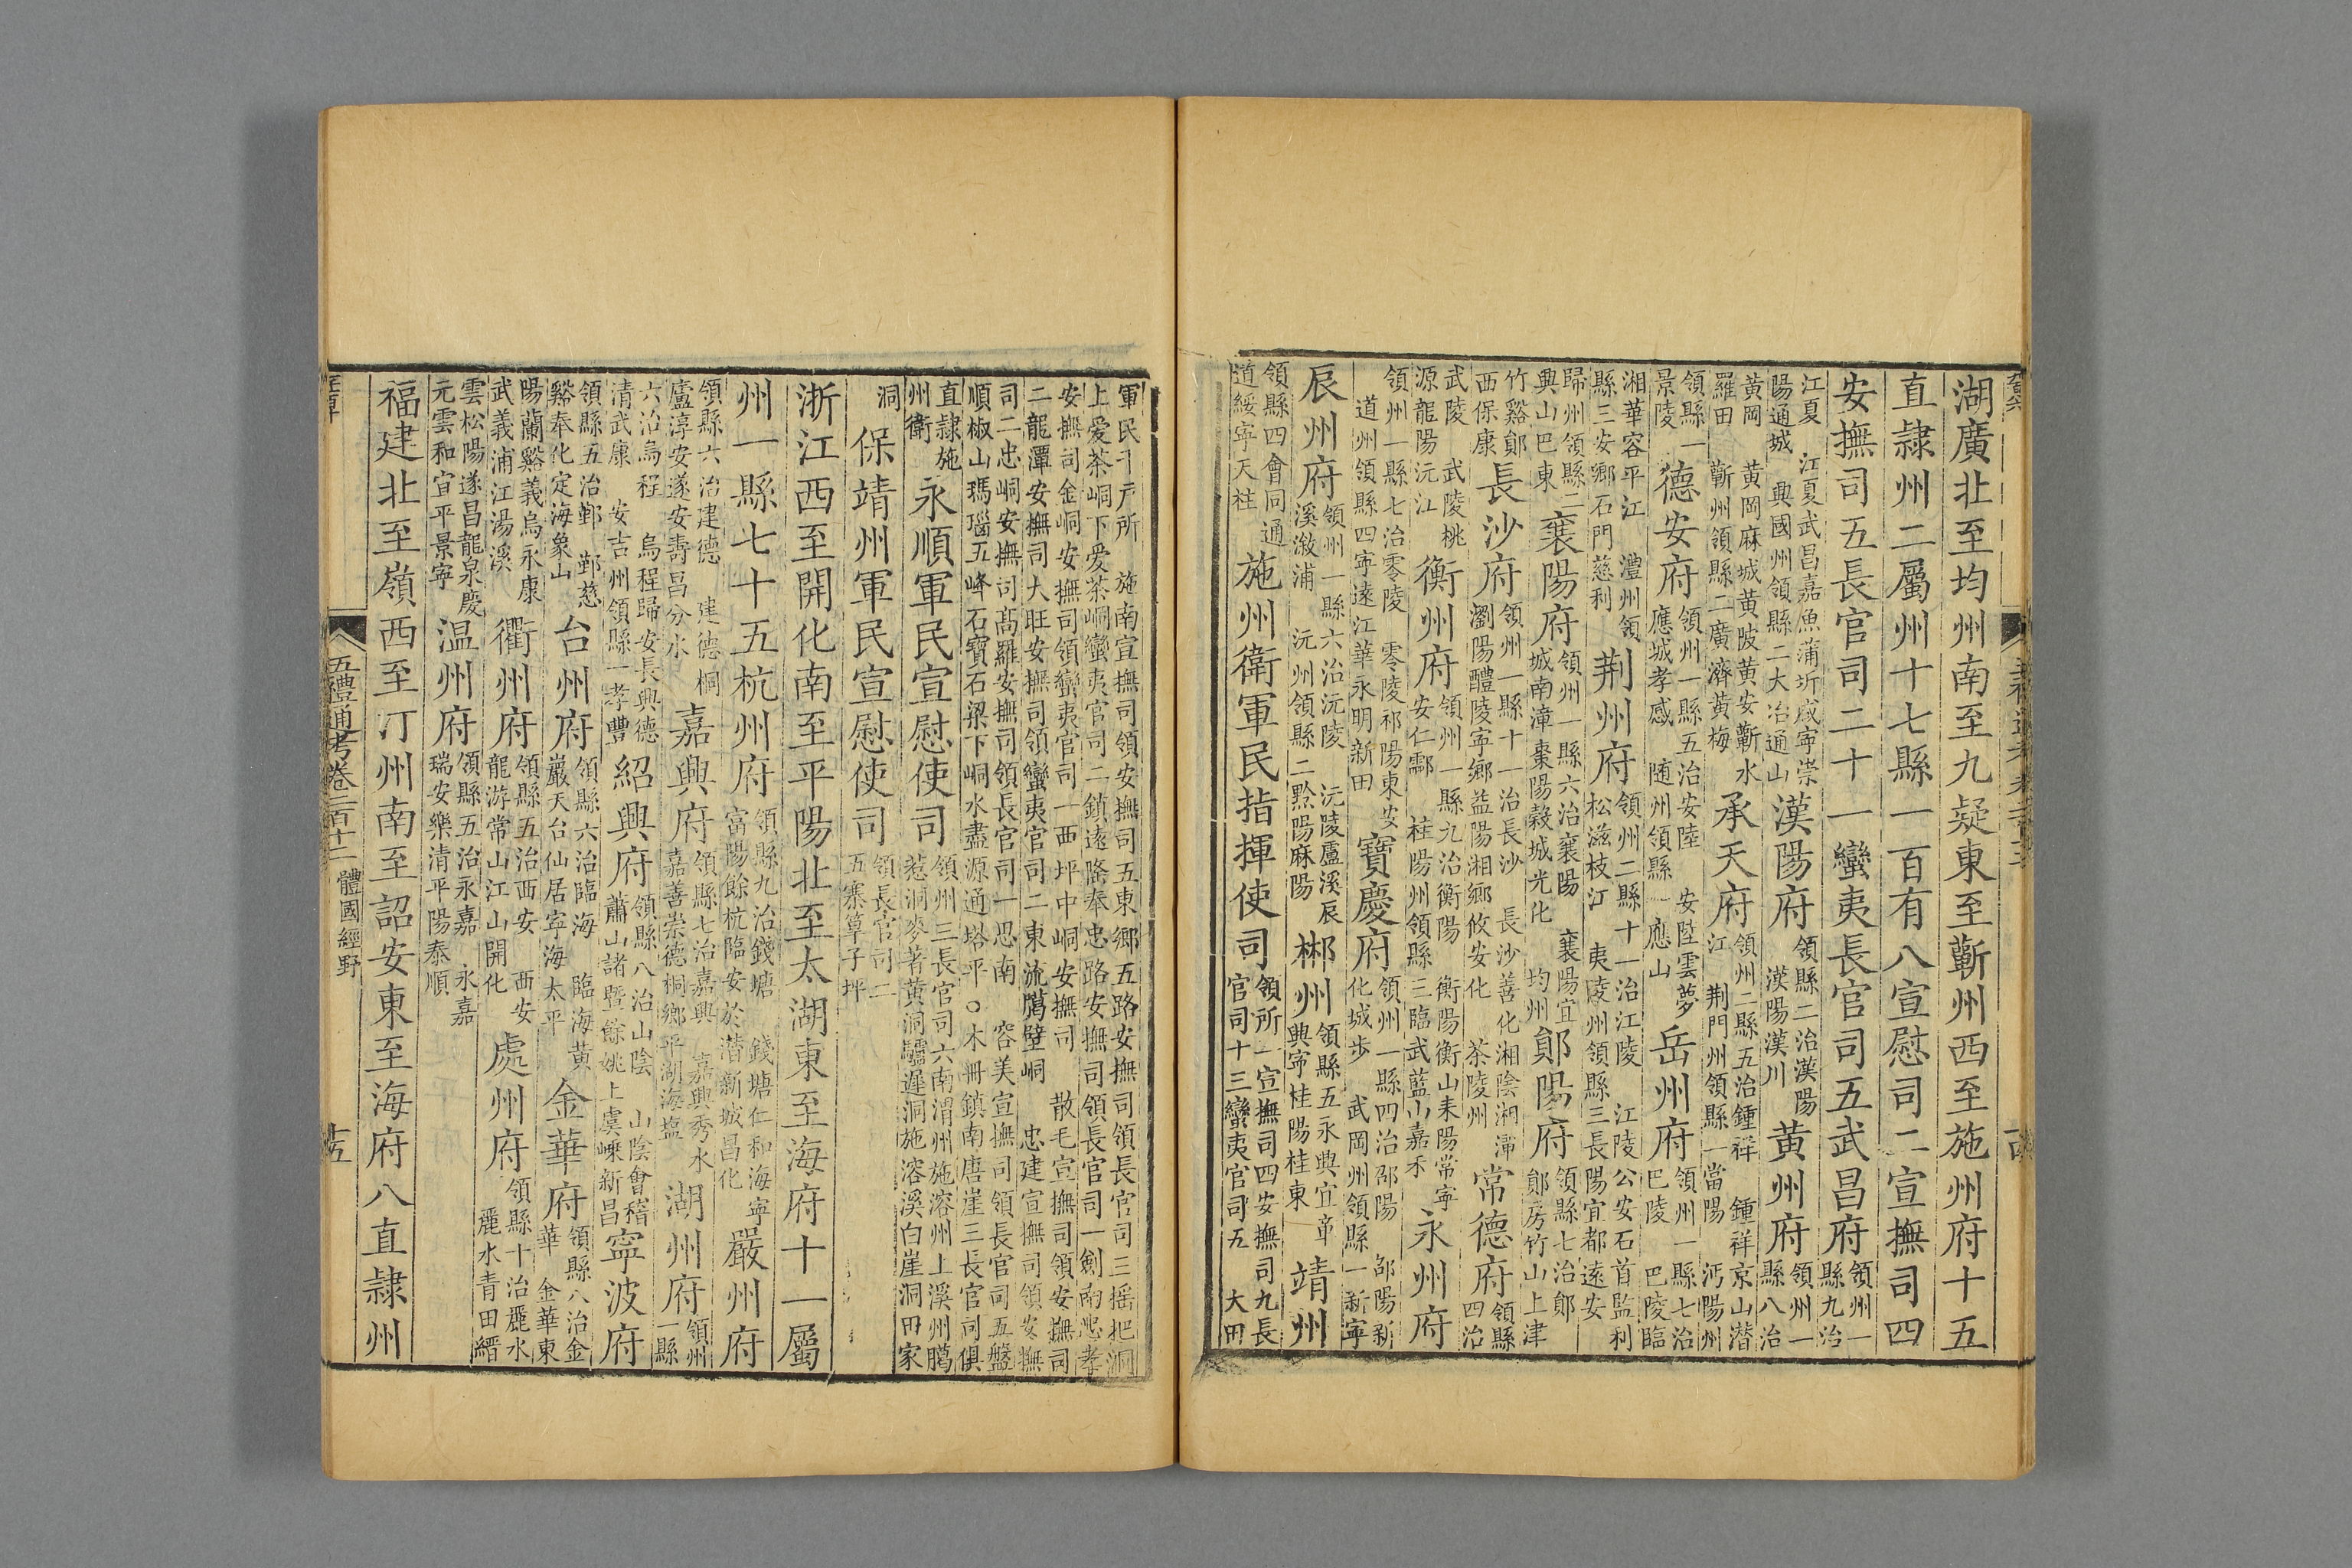 湖廣北至均州南至九疑東至蘄州西至施州府十五
直隷州二屬州十七縣一百有八宣慰司二宣撫司四
安撫司五長官司二十一蠻夷長官司五武昌府領州一縣九治
江夏 江夏武昌嘉魚蒲圻咸寧崇陽通城 興國州領縣二大冶通山漢陽府領縣二治漢陽 漢陽漢川黄州府領州一縣八治
黄岡 黄岡麻城黄陂黄安蘄水羅田 蘄州領縣二廣濟黄梅承天府領州二縣五治鍾祥 鍾祥京山潛江 荆門州領縣一當陽 沔陽州
領縣一景陵德安府領州一縣五治安陸 安陸雲夢應城孝感 随州領縣一應山岳州府領州一縣七治巴陵 巴陵臨
湘華容平江 澧州領縣三安鄉石門慈利荆州府領州二縣十一治江陵 江陵公安石首監利松滋枝江 夷陵州領縣三長陽宜都遠安
歸州領縣二興山巴東襄陽府領州一縣六治襄陽 襄陽宜城南漳棗陽穀城光化 均州鄖陽府領縣七治鄖 鄖房竹山上津
竹谿鄖西保康長沙府領州一縣十一治長沙 長沙善化湘陰湘潭瀏陽醴陵寧鄉益陽湘鄉攸安化 茶陵州常德府領縣四治
武陵 武陵桃源龍陽沅江衡州府領州一縣九治衡陽 衡陽衡山耒陽常寧安仁酃 桂陽州領縣三臨武藍山嘉禾永州府
領州一縣七治零陵 零陵祁陽東安 道州領縣四寧遠江華永明新田寶慶府領州一縣四治邵陽 邵陽新化城步 武岡州領縣一新寧
辰州府領州一縣六治沅陵 沅陵盧溪辰溪溆浦 沅州領縣二黔陽麻陽郴州領縣五永興宜章興寧桂陽桂東靖州
領縣四會同通道綏寧天柱施州衛軍民指揮使司領所一宣撫司四安撫司九長官司十三蠻夷官司五 大田
軍民千戸所 施南宣撫司領安撫司五東鄉五路安撫司領長官司三摇把洞上愛茶峒下愛茶峒蠻夷官司二鎮遠隆奉忠路安撫司領長官司一劍南忠孝
安撫司金峒安撫司領蠻夷官司一西坪中峒安撫司 散毛宣撫司領安撫司二龍潭安撫司大旺安撫司領蠻夷官司二東流臈壁峒 忠建宣撫司領安撫
司二忠峒安撫司髙羅安撫司領長官司一思南 容美宣撫司領長官司五盤順椒山瑪瑙五峰石寶石梁下峒水盡源通塔平○木冊鎮南唐崖三長官司俱
直隷施州衛永順軍民宣慰使司領州三長官司六南渭州施溶州上溪州臈惹洞麥著黄洞驢遲洞施溶溪白崖洞田家
洞保靖州軍民宣慰使司領長官司二五寨筸子坪
浙江西至開化南至平陽北至太湖東至海府十一屬
州一縣七十五杭州府領縣九治錢塘 錢塘仁和海寧富陽餘杭臨安於潛新城昌化嚴州府
領縣六治建德 建德桐廬淳安遂安壽昌分水嘉興府領縣七治嘉興 嘉興秀水嘉善崇德桐鄉平湖海塩湖州府領州一縣
六治烏程 烏程歸安長興德清武康 安吉州領縣一孝豐紹興府領縣八治山陰 山陰會稽蕭山諸暨餘姚上虞嵊新昌寧波府
領縣五治鄞 鄞慈谿奉化定海象山台州府領縣六治臨海 臨海黄巖天台仙居寧海太平金華府領縣八治金華 金華東
陽蘭谿義烏永康武義浦江湯溪衢州府領縣五治西安 西安龍游常山江山開化處州府領縣十治麗水 麗水青田縉
雲松陽遂昌龍泉慶元雲和宣平景寧温州府領縣五治永嘉 永嘉瑞安樂清平陽泰順
福建北至嶺西至汀州南至詔安東至海府八直隷州
五禮通考卷二百十二 體國經野